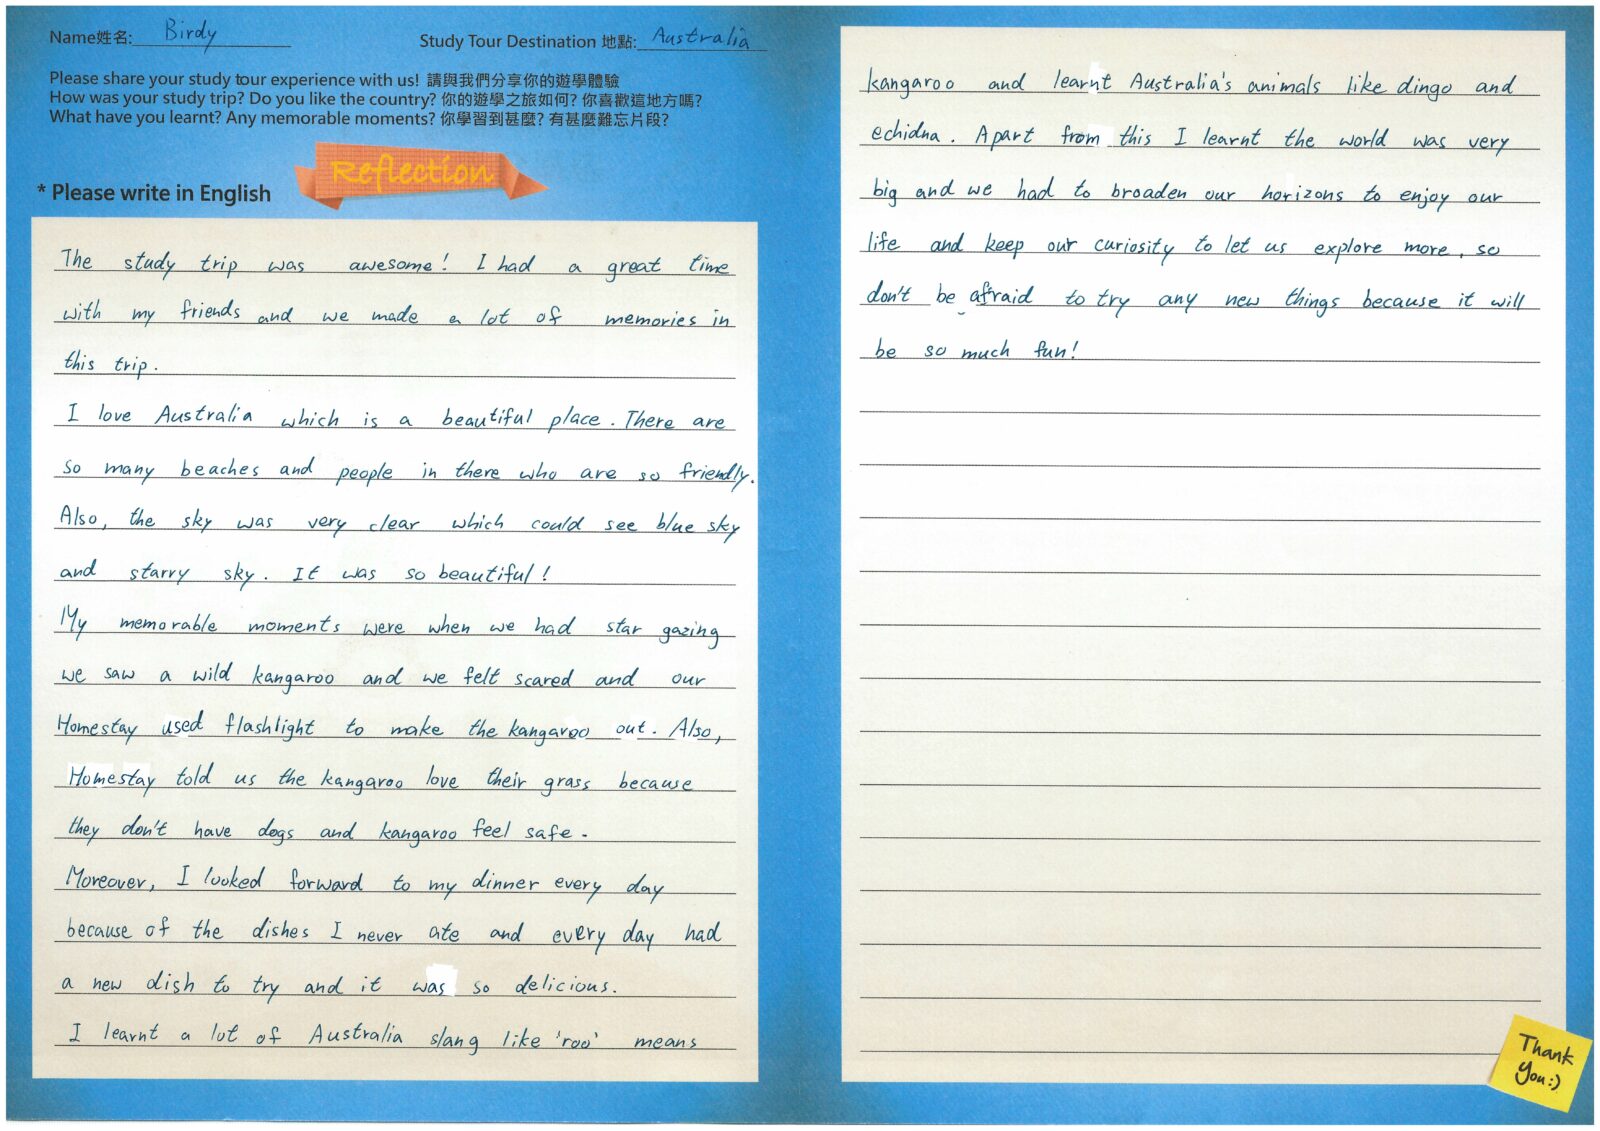 Name姓名: Birdy
Study Tour Destination 地點: Australia
Please share your study tour experience with us! 請與我們分享你的遊學體驗
How was your study trip? Do you like the country? 你的遊學之旅如何? 你喜歡這地方嗎?
What have you learnt? Any memorable moments? 你學習到甚麼? 有甚麼難忘片段?
Reflection
* Please write in English
The study trip was awesome! I had a great time
with my friends and we made a lot of memories in
this trip.
I love Australia which is a beautiful place. There are
so many beaches and people in there who are so friendly.
Also, the sky was very clear which could see blue sky
and starry sky. It was so beautiful!
My memorable moments were when we had star gazing
we saw a wild kangaroo and we felt scared and our
Homestay used flashlight to make the kangaroo out. Also,
Homestay told us the kangaroo love their grass because
they don't have dogs and kangaroo feel safe.
Moreover, I looked forward to my dinner every day
because of the dishes I never ate and every day had
a new dish to try and it was so delicious.
I learnt a lot of Australia slang like 'roo' means
kangaroo and learnt Australia's animals like dingo and
echidna. Apart from this I learnt the world was very
big and we had to broaden our horizons to enjoy our
life and keep our curiosity to let us explore more, so
don't be afraid to try any new things because it will
be so much fun!
Thank
You:)